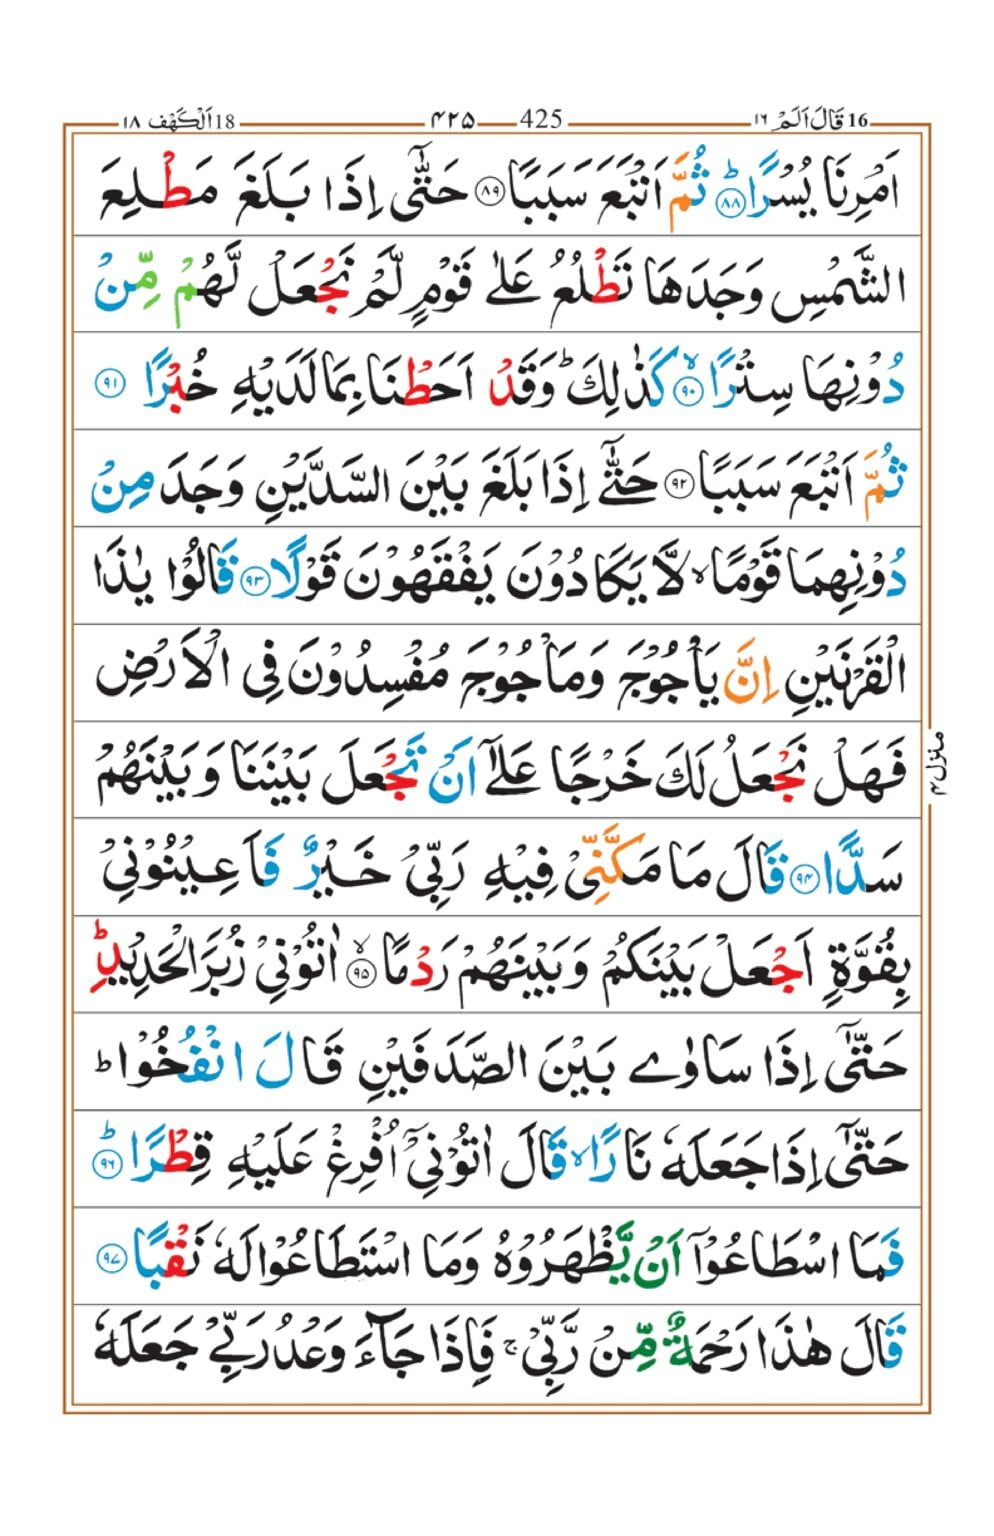 16 قَالَ اَلَمْ ١٦ 425 ۴۲۵ 18 اَلْكَهْف ١٨
اَمْرِنَا يُسْرًا ؕ ﴿۸۸﴾ ثُمَّ اَتْبَعَ سَبَبًا ﴿۸۹﴾ حَتّٰۤى اِذَا بَلَغَ مَطْلِعَ
الشَّمْسِ وَجَدَهَا تَطْلُعُ عَلٰى قَوْمٍ لَّمْ نَجْعَلْ لَّهُمْ مِّنْ
دُوْنِهَا سِتْرًا ۙ ﴿۹۰﴾ كَذٰلِكَ ؕ وَقَدْ اَحَطْنَا بِمَا لَدَيْهِ خُبْرًا ﴿۹۱﴾
ثُمَّ اَتْبَعَ سَبَبًا ﴿۹۲﴾ حَتّٰۤى اِذَا بَلَغَ بَيْنَ السَّدَّيْنِ وَجَدَ مِنْ
دُوْنِهِمَا قَوْمًا ۙ لَّا يَكَادُوْنَ يَفْقَهُوْنَ قَوْلًا ﴿۹۳﴾ قَالُوْا يٰذَا
الْقَرْنَيْنِ اِنَّ يَاْجُوْجَ وَمَاْجُوْجَ مُفْسِدُوْنَ فِى الْاَرْضِ
فَهَلْ نَجْعَلُ لَكَ خَرْجًا عَلٰٓى اَنْ تَجْعَلَ بَيْنَنَا وَبَيْنَهُمْ
سَدًّا ﴿۹۴﴾ قَالَ مَا مَكَّنِّىْ فِيْهِ رَبِّىْ خَيْرٌ فَاَعِيْنُوْنِىْ
بِقُوَّةٍ اَجْعَلْ بَيْنَكُمْ وَبَيْنَهُمْ رَدْمًا ۙ ﴿۹۵﴾ اٰتُوْنِىْ زُبَرَ الْحَدِيْدِ ؕ
حَتّٰٓى اِذَا سَاوٰى بَيْنَ الصَّدَفَيْنِ قَالَ انْفُخُوْا ؕ
حَتّٰٓى اِذَا جَعَلَهٗ نَارًا ۙ قَالَ اٰتُوْنِىْۤ اُفْرِغْ عَلَيْهِ قِطْرًا ؕ ﴿۹۶﴾
فَمَا اسْطَاعُوْۤا اَنْ يَّظْهَرُوْهُ وَمَا اسْتَطَاعُوْا لَهٗ نَقْبًا ﴿۹۷﴾
قَالَ هٰذَا رَحْمَةٌ مِّنْ رَّبِّىْ ۚ فَاِذَا جَآءَ وَعْدُ رَبِّىْ جَعَلَهٗ
منزل ۴